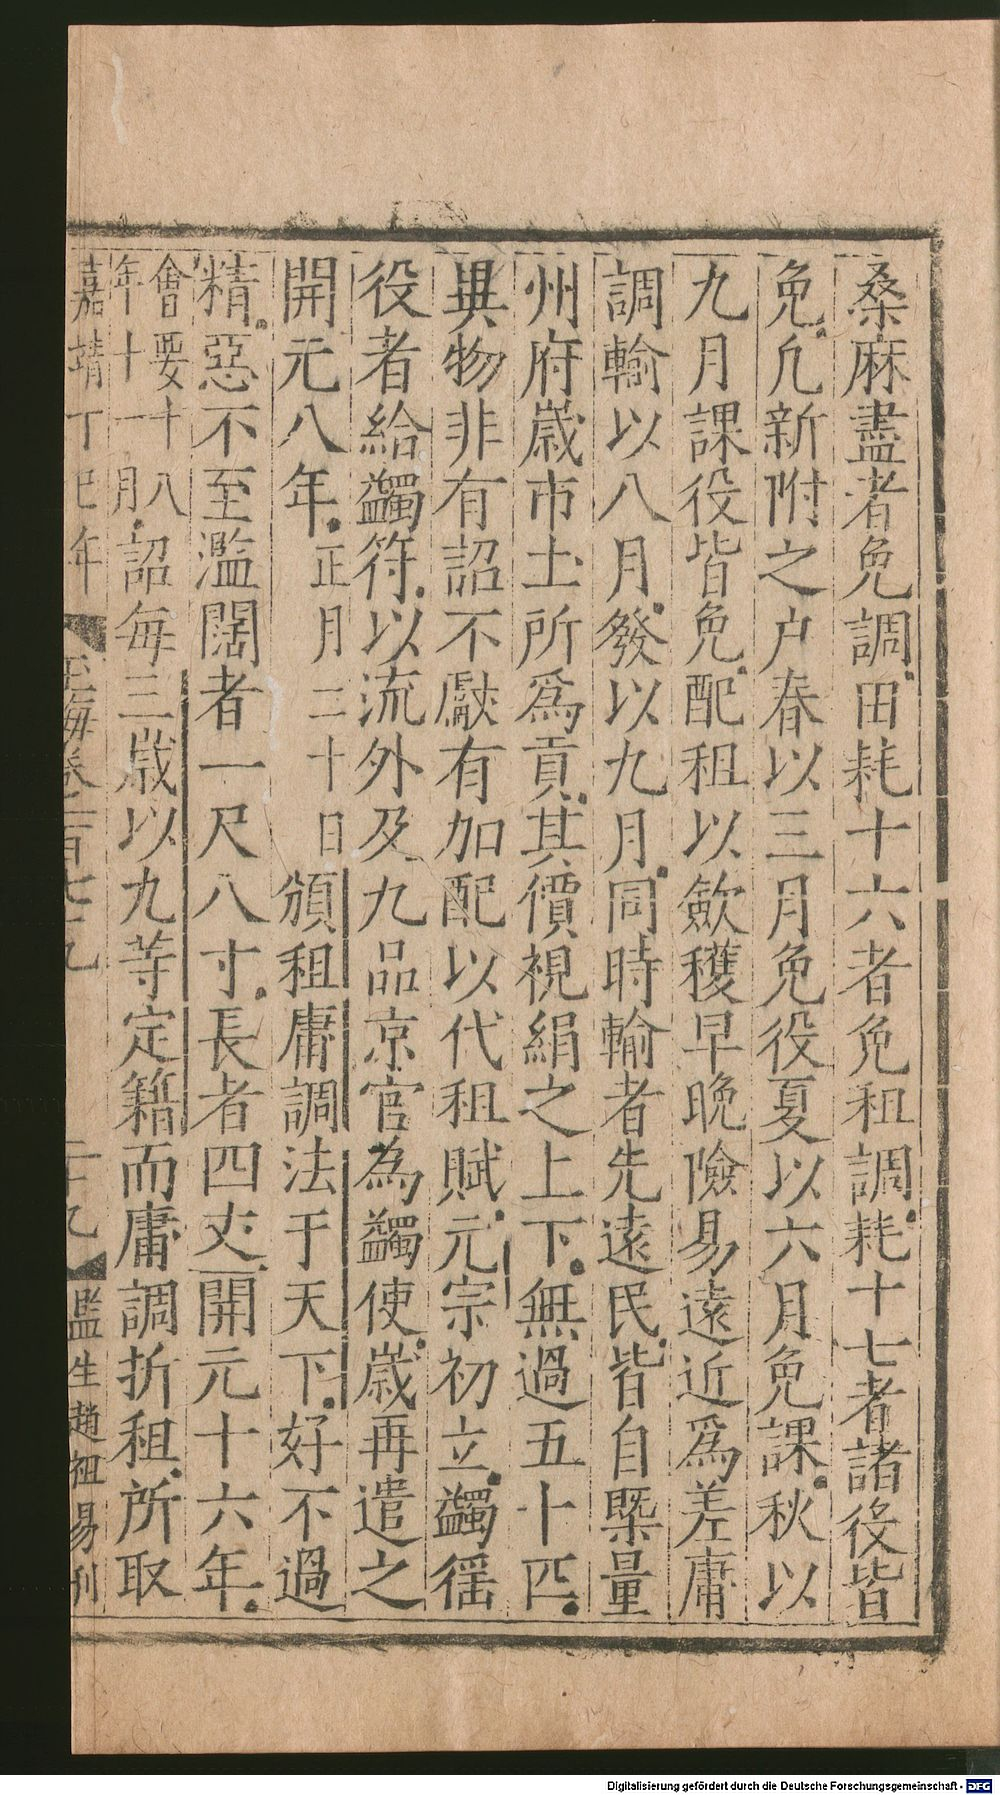 桑麻盡者免調田耗十六者免租調耗十七者諸役皆
免凢新附之户春以三月免役夏以六月免課秋以
九月課役皆免配租以歛穫早晚險易遠近爲差庸
調輸以八月發以九月同時輸者先遠民皆自槩量
州府嵗市土所爲貢其價視絹之上下無過五十匹
異物非有詔不獻有加配以代租賦元宗初立蠲徭
役者給蠲符以流外及九品京官為蠲使嵗再遣之
開元八年正月二十日頒租庸調法于天下好不過
精惡不至濫闊者一尺八寸長者四丈開元十六年
會要十八年十一月詔每三嵗以九等定籍而庸調折租所取
嘉靖丁巳年 玉海卷一百七十九 二十九 監生趙祖易刊
Digitalisierung gefördert durch die Deutsche Forschungsgemeinschaft - DFG